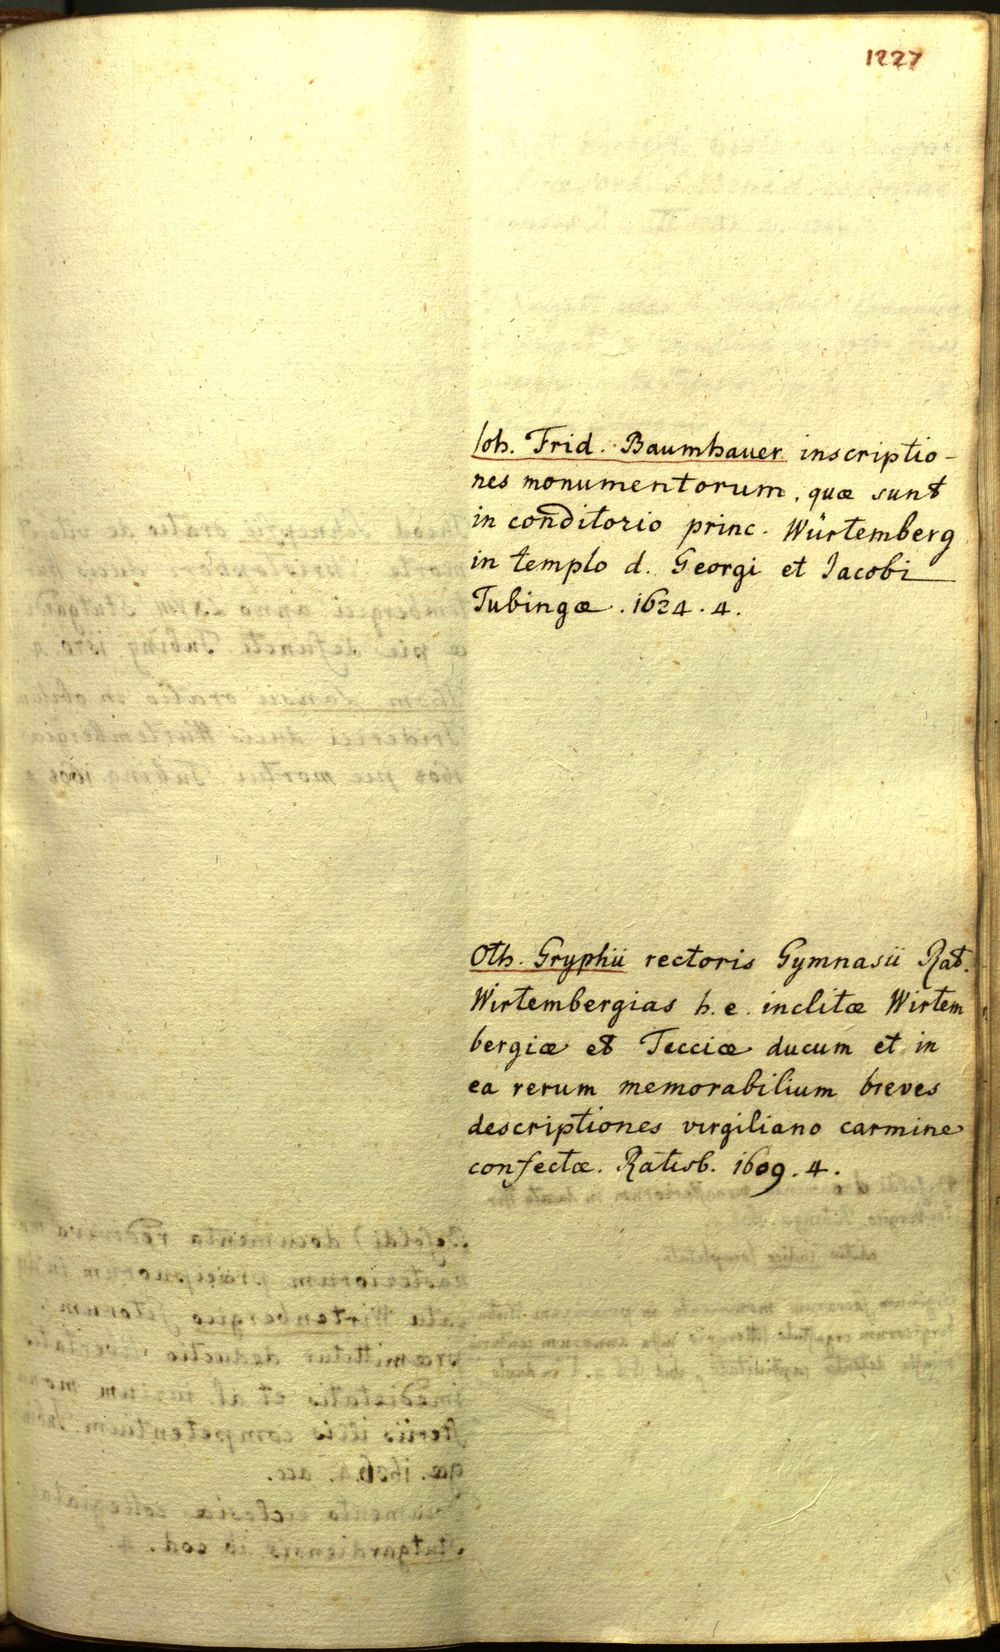 1227
Ioh. Frid. Baumhauer inscriptio-
nes monumentorum, quæ sunt
in conditorio princ. Würtemberg
in templo d. Georgi et Iacobi
Tubingæ. 1624. 4.
Oth. Gryphii rectoris Gymnasii Rat.
Wirtembergias h. e. inclitæ Wirtem
bergiæ et Tecciæ ducum et in
ea rerum memorabilium breves
descriptiones virgiliano carmine
confectæ. Ratisb. 1609. 4.